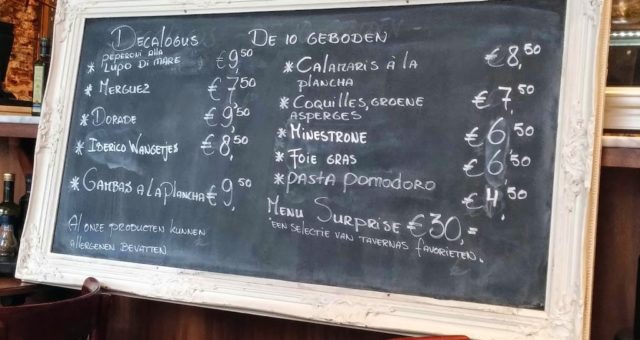 DECALOGUS
PEPERONI ALLA
* LUPO DI MARE €9,50
* MERGUEZ €7,50
* DORADE €9,50
* IBERICO WANGETJES €8,50
* GAMBAS A LA PLANCHA €9,50
AL ONZE PRODUCTEN KUNNEN
ALLERGENEN BEVATTEN
DE 10 GEBODEN
* CALAMARIS À LA €8,50
PLANCHA
* COQUILLES, GROENE €7,50
ASPERGES
* MINESTRONE €6,50
* FOIE GRAS €6,50
* PASTA POMODORO €4,50
MENU SURPRISE €30,=
EEN SELECTIE VAN TAVERNAS FAVORIETEN.